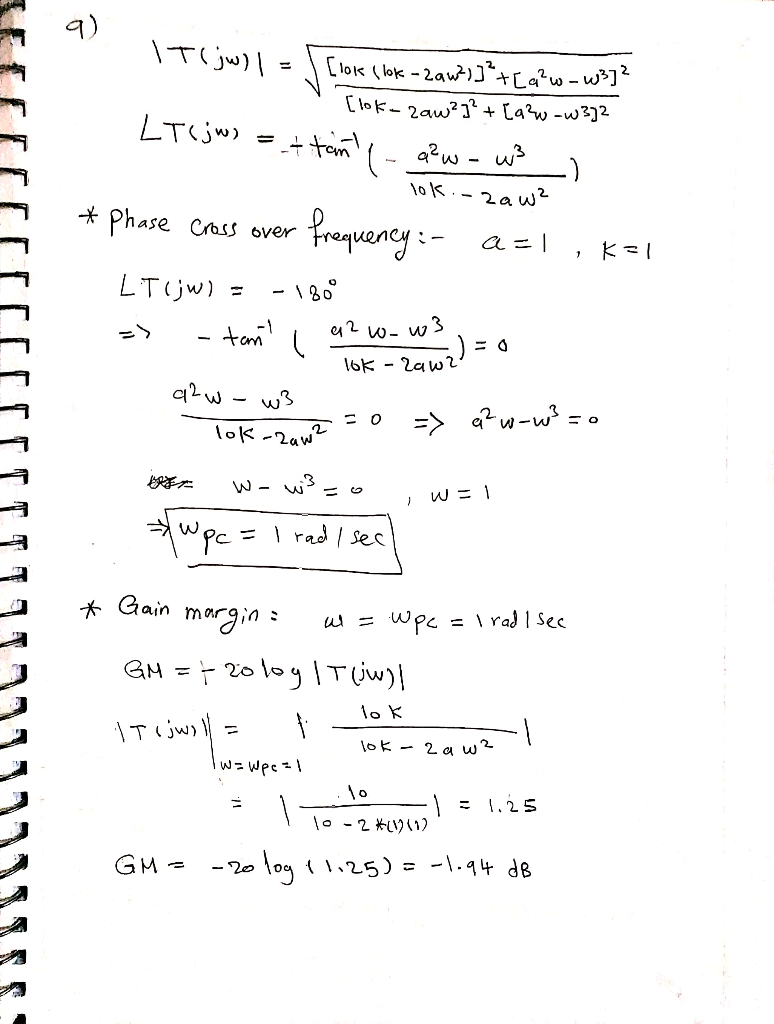 a)
|T(jw)| = √ [10K(10K-2aw²)]²+[a²w-w³]² / [10K-2aw²]²+[a²w-w³]²
∠T(jw) = -+ tan⁻¹ (- a²w-w³ / 10K-2aw² )
* Phase Cross over frequency:- a=1 , K=1
∠T(jw) = -180°
=> - tan⁻¹ ( a²w-w³ / 10K-2aw² ) = 0
a²w-w³ / 10K-2aw² = 0 => a²w-w³=0
w-w³=0 , w=1
=> Wpc = 1 rad/sec
* Gain margin: w = Wpc = 1 rad/sec
GM = - 20 log |T(jw)|
|T(jw)| |w=wpc=1 = | 10K / 10K-2aw² |
= | 10 / 10-2*(1)(1) | = 1.25
GM = -20 log (1.25) = -1.94 dB